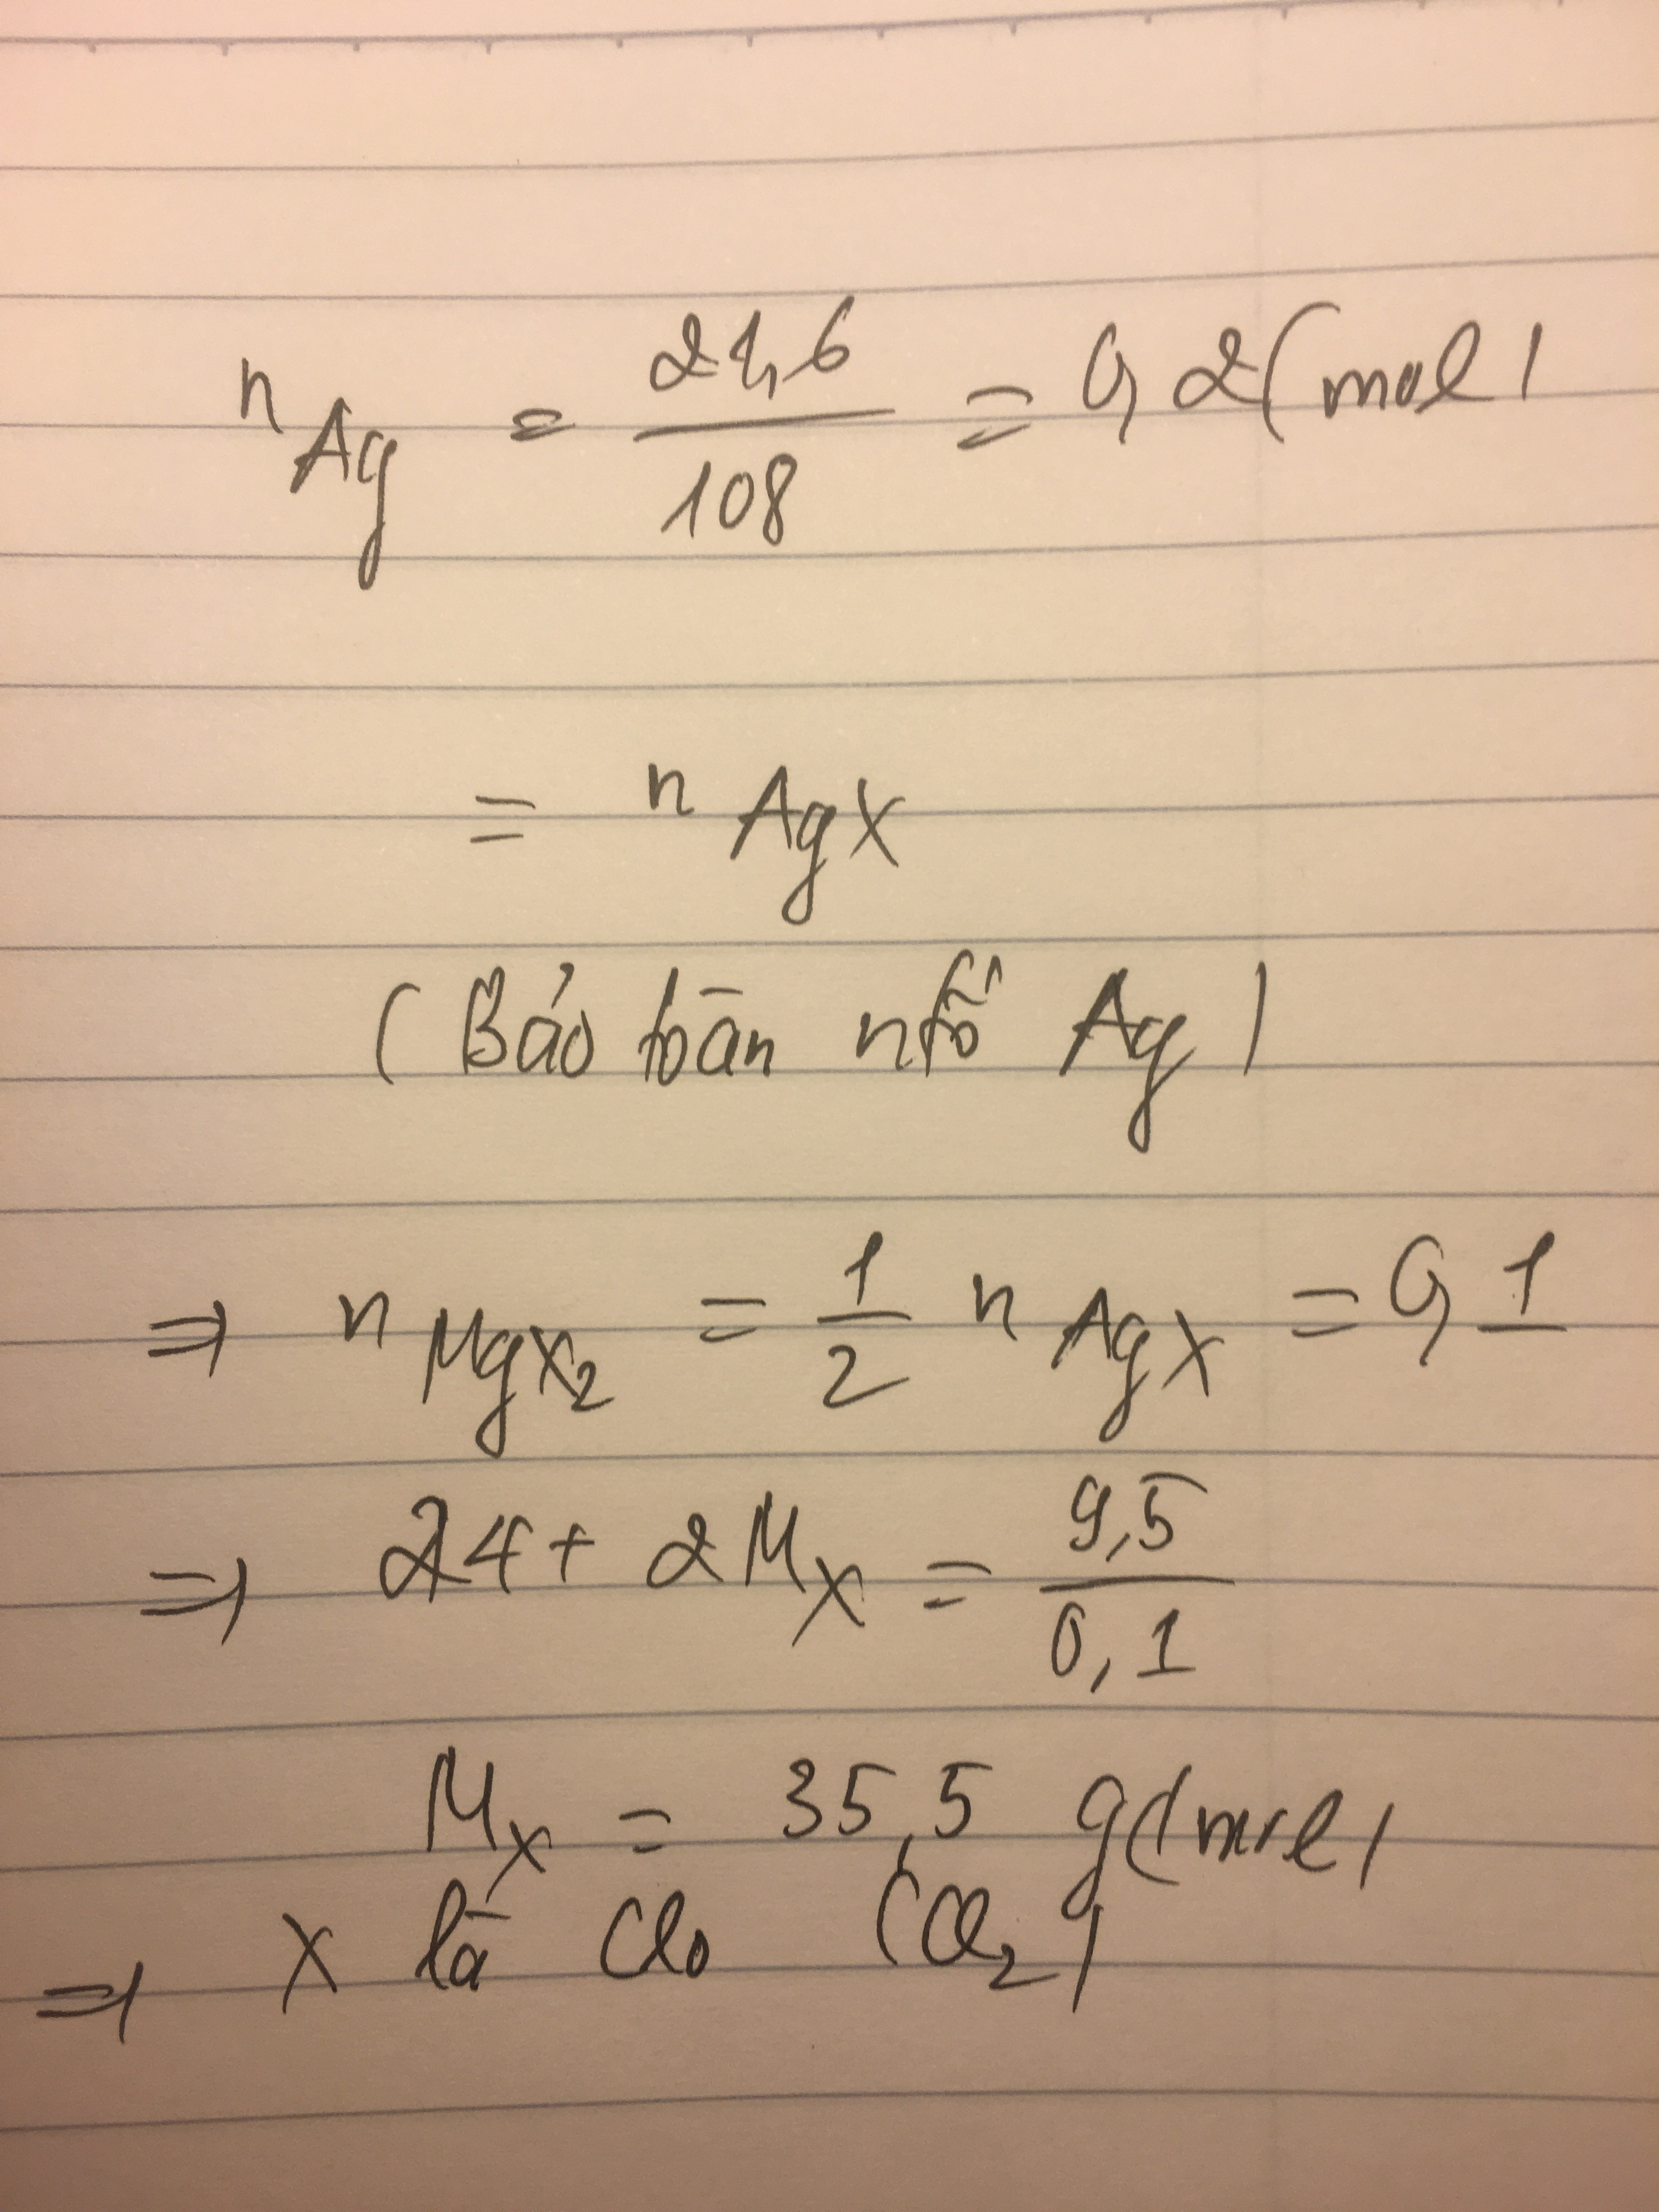 n Ag = 21,6 / 108 = 0,2 (mol)
= n AgX
(Bảo toàn ntố Ag)
⇒ n MgX₂ = 1/2 n AgX = 0,1
⇒ 24 + 2 M X = 9,5 / 0,1
M X = 35,5 g(/mol)
⇒ X là Clo (Cl₂)